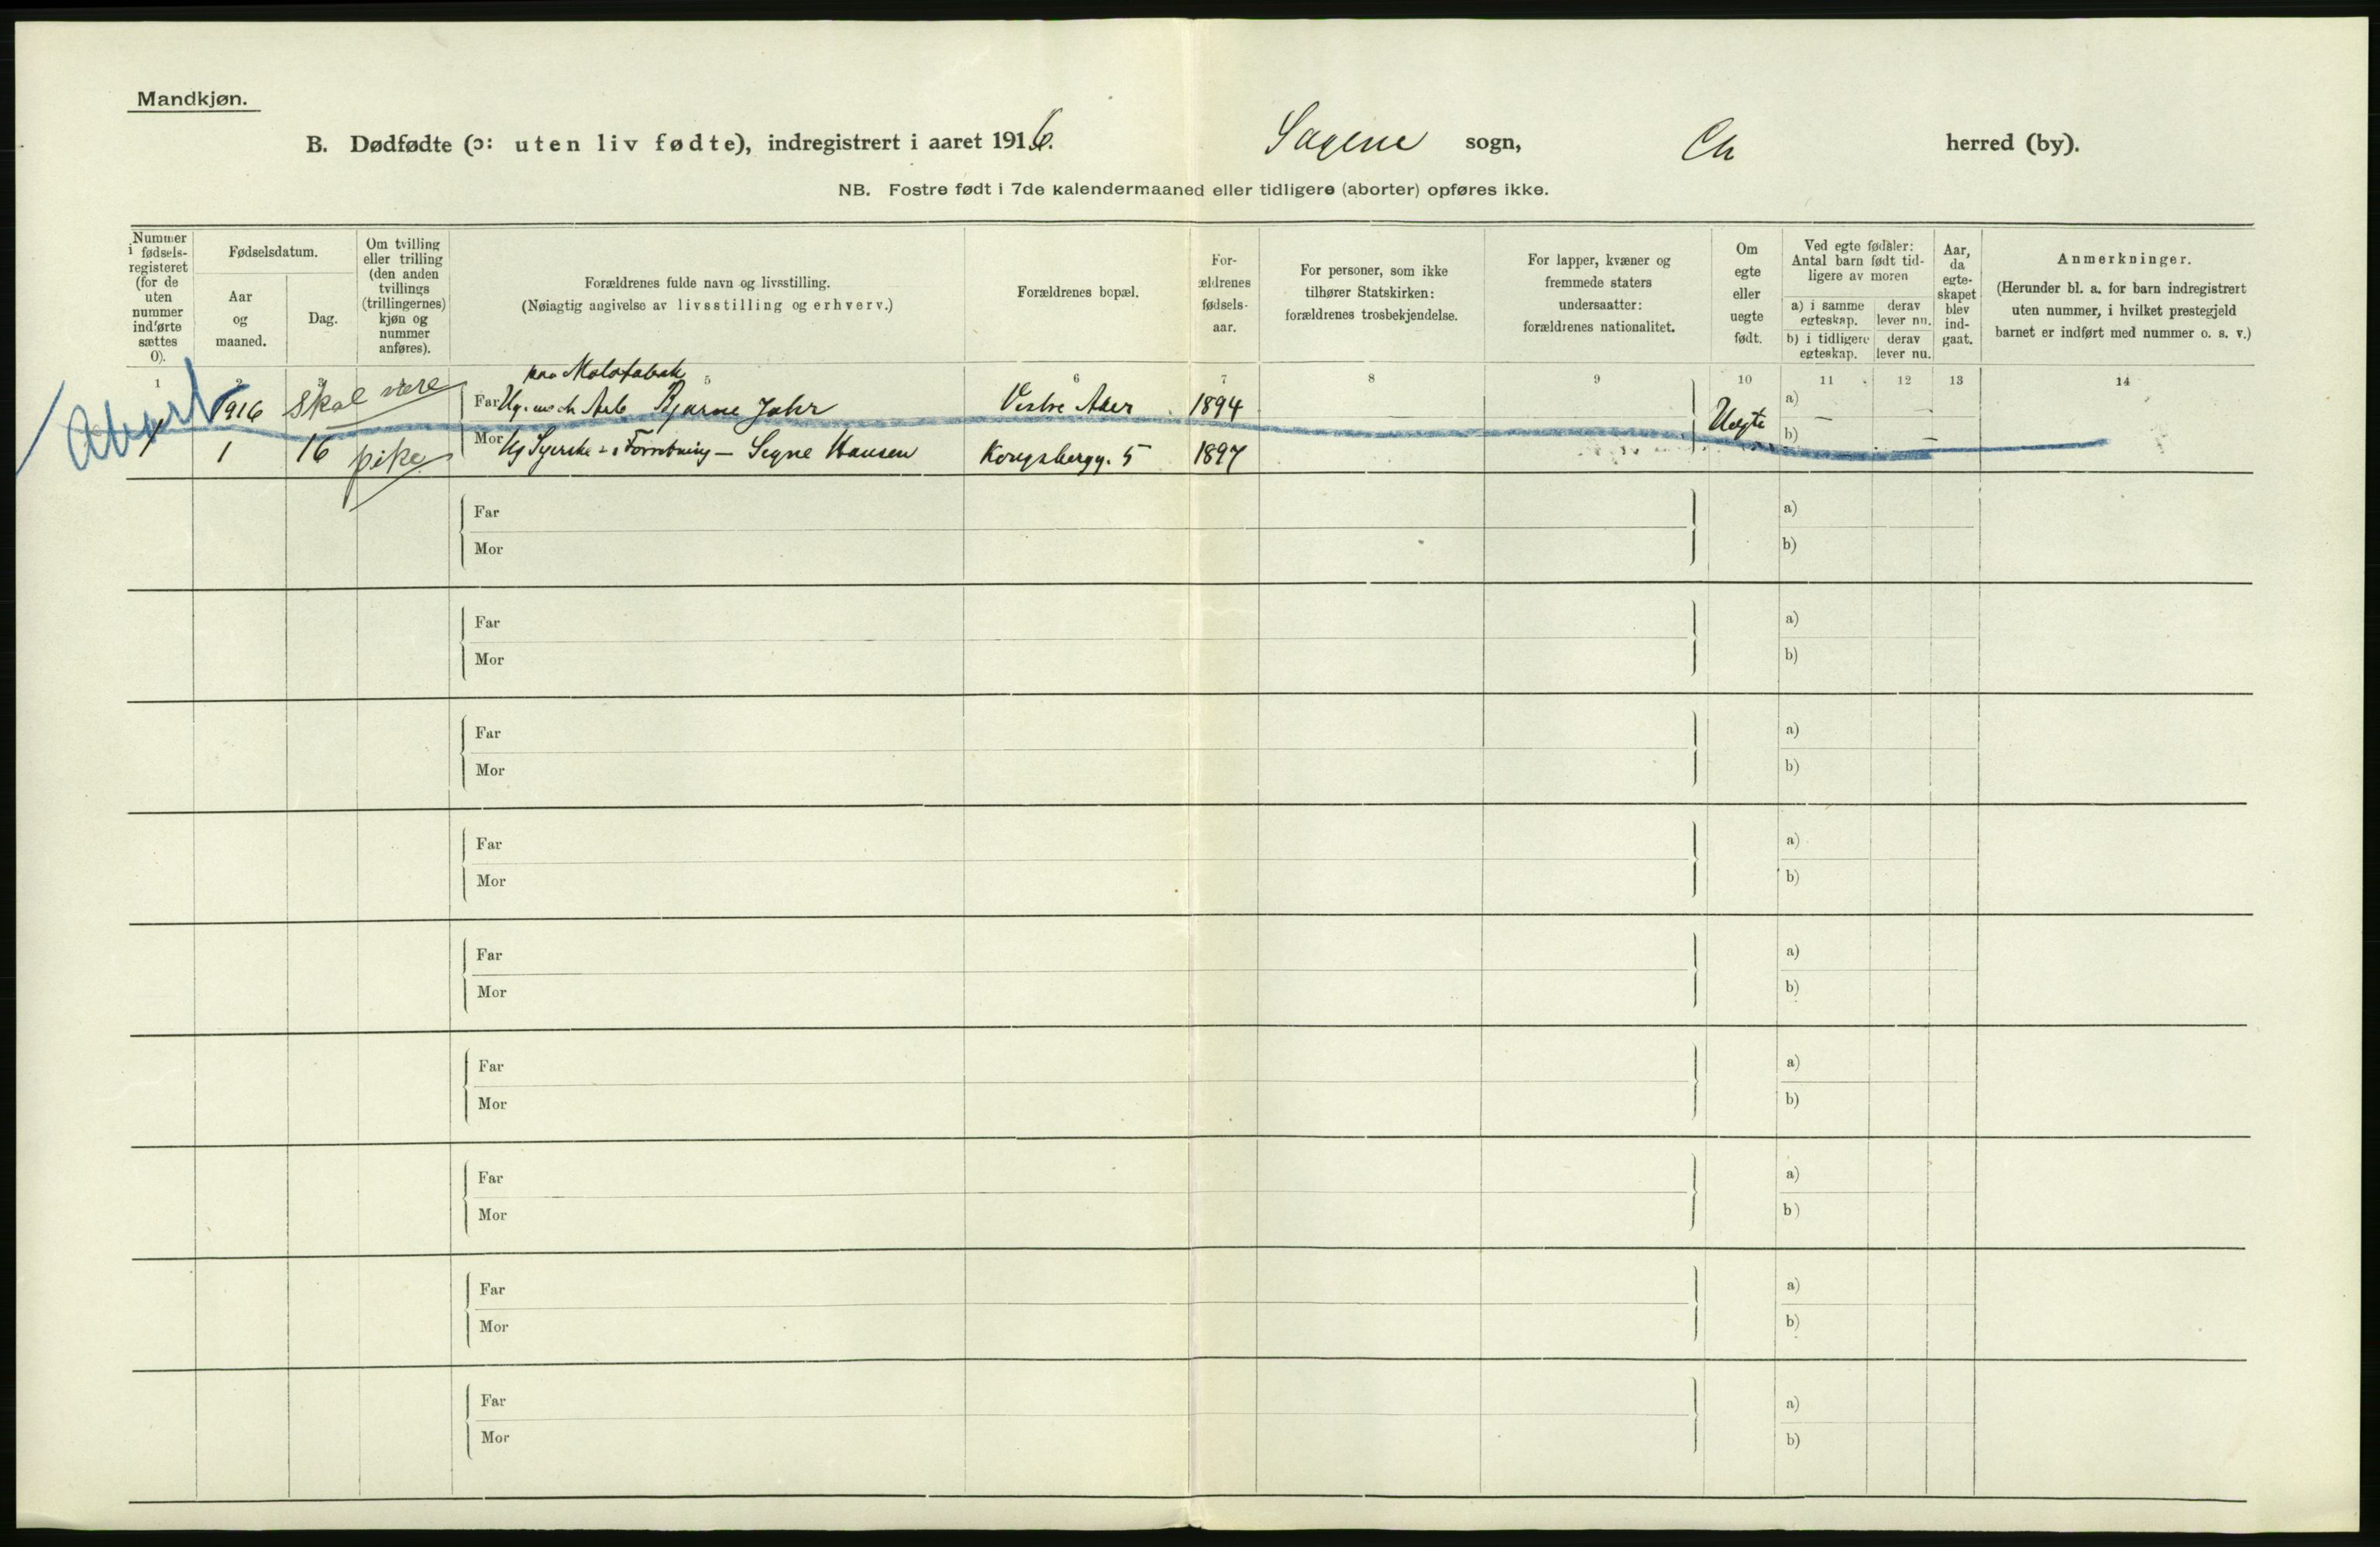 Mandkjøn.
B. Dødfødte (ɔ: uten liv fødte), indregistrert i aaret 1916. Sagene sogn, Ch herred (by).
NB. Fostre født i 7de kalendermaaned eller tidligere (aborter) opføres ikke.
Nummer
i fødsels-
registeret
(for de
uten
nummer
indførte
sættes
0).
Fødselsdatum.
Aar
og
maaned.
Dag.
Om tvilling
eller trilling
(den anden
tvillings
(trillingernes)
kjøn og
nummer
anføres).
Forældrenes fulde navn og livsstilling.
(Nøiagtig angivelse av livsstilling og erhverv.)
Forældrenes bopæl.
For-
ældrenes
fødsels-
aar.
For personer, som ikke
tilhører Statskirken:
forældrenes trosbekjendelse.
For lapper, kvæner og
fremmede staters
undersaatter:
forældrenes nationalitet.
Om
egte
eller
uegte
født.
Ved egte fødsler:
Antal barn født tid-
ligere av moren
a) i samme
egteskap.
derav
lever nu.
b) i tidligere
egteskap.
derav
lever nu.
Aar,
da
egte-
skapet
blev
ind-
gaat.
Anmerkninger.
(Herunder bl. a. for barn indregistrert
uten nummer, i hvilket prestegjeld
barnet er indført med nummer o. s. v.)
1 2 3 5 6 7 8 9 10 11 12 13 14
Abort
1916 skal være
1 16 pike
Far Ug. Arb. Bjarne Jahr Vestre Aker 1894
Mor Ug Syerske i Forretning — Signe Hansen Kongsbergg. 5 1897
Uegte
a) —
b) —
Far a)
Mor b)
Far a)
Mor b)
Far a)
Mor b)
Far a)
Mor b)
Far a)
Mor b)
Far a)
Mor b)
Far a)
Mor b)
Far a)
Mor b)
Far a)
Mor b)